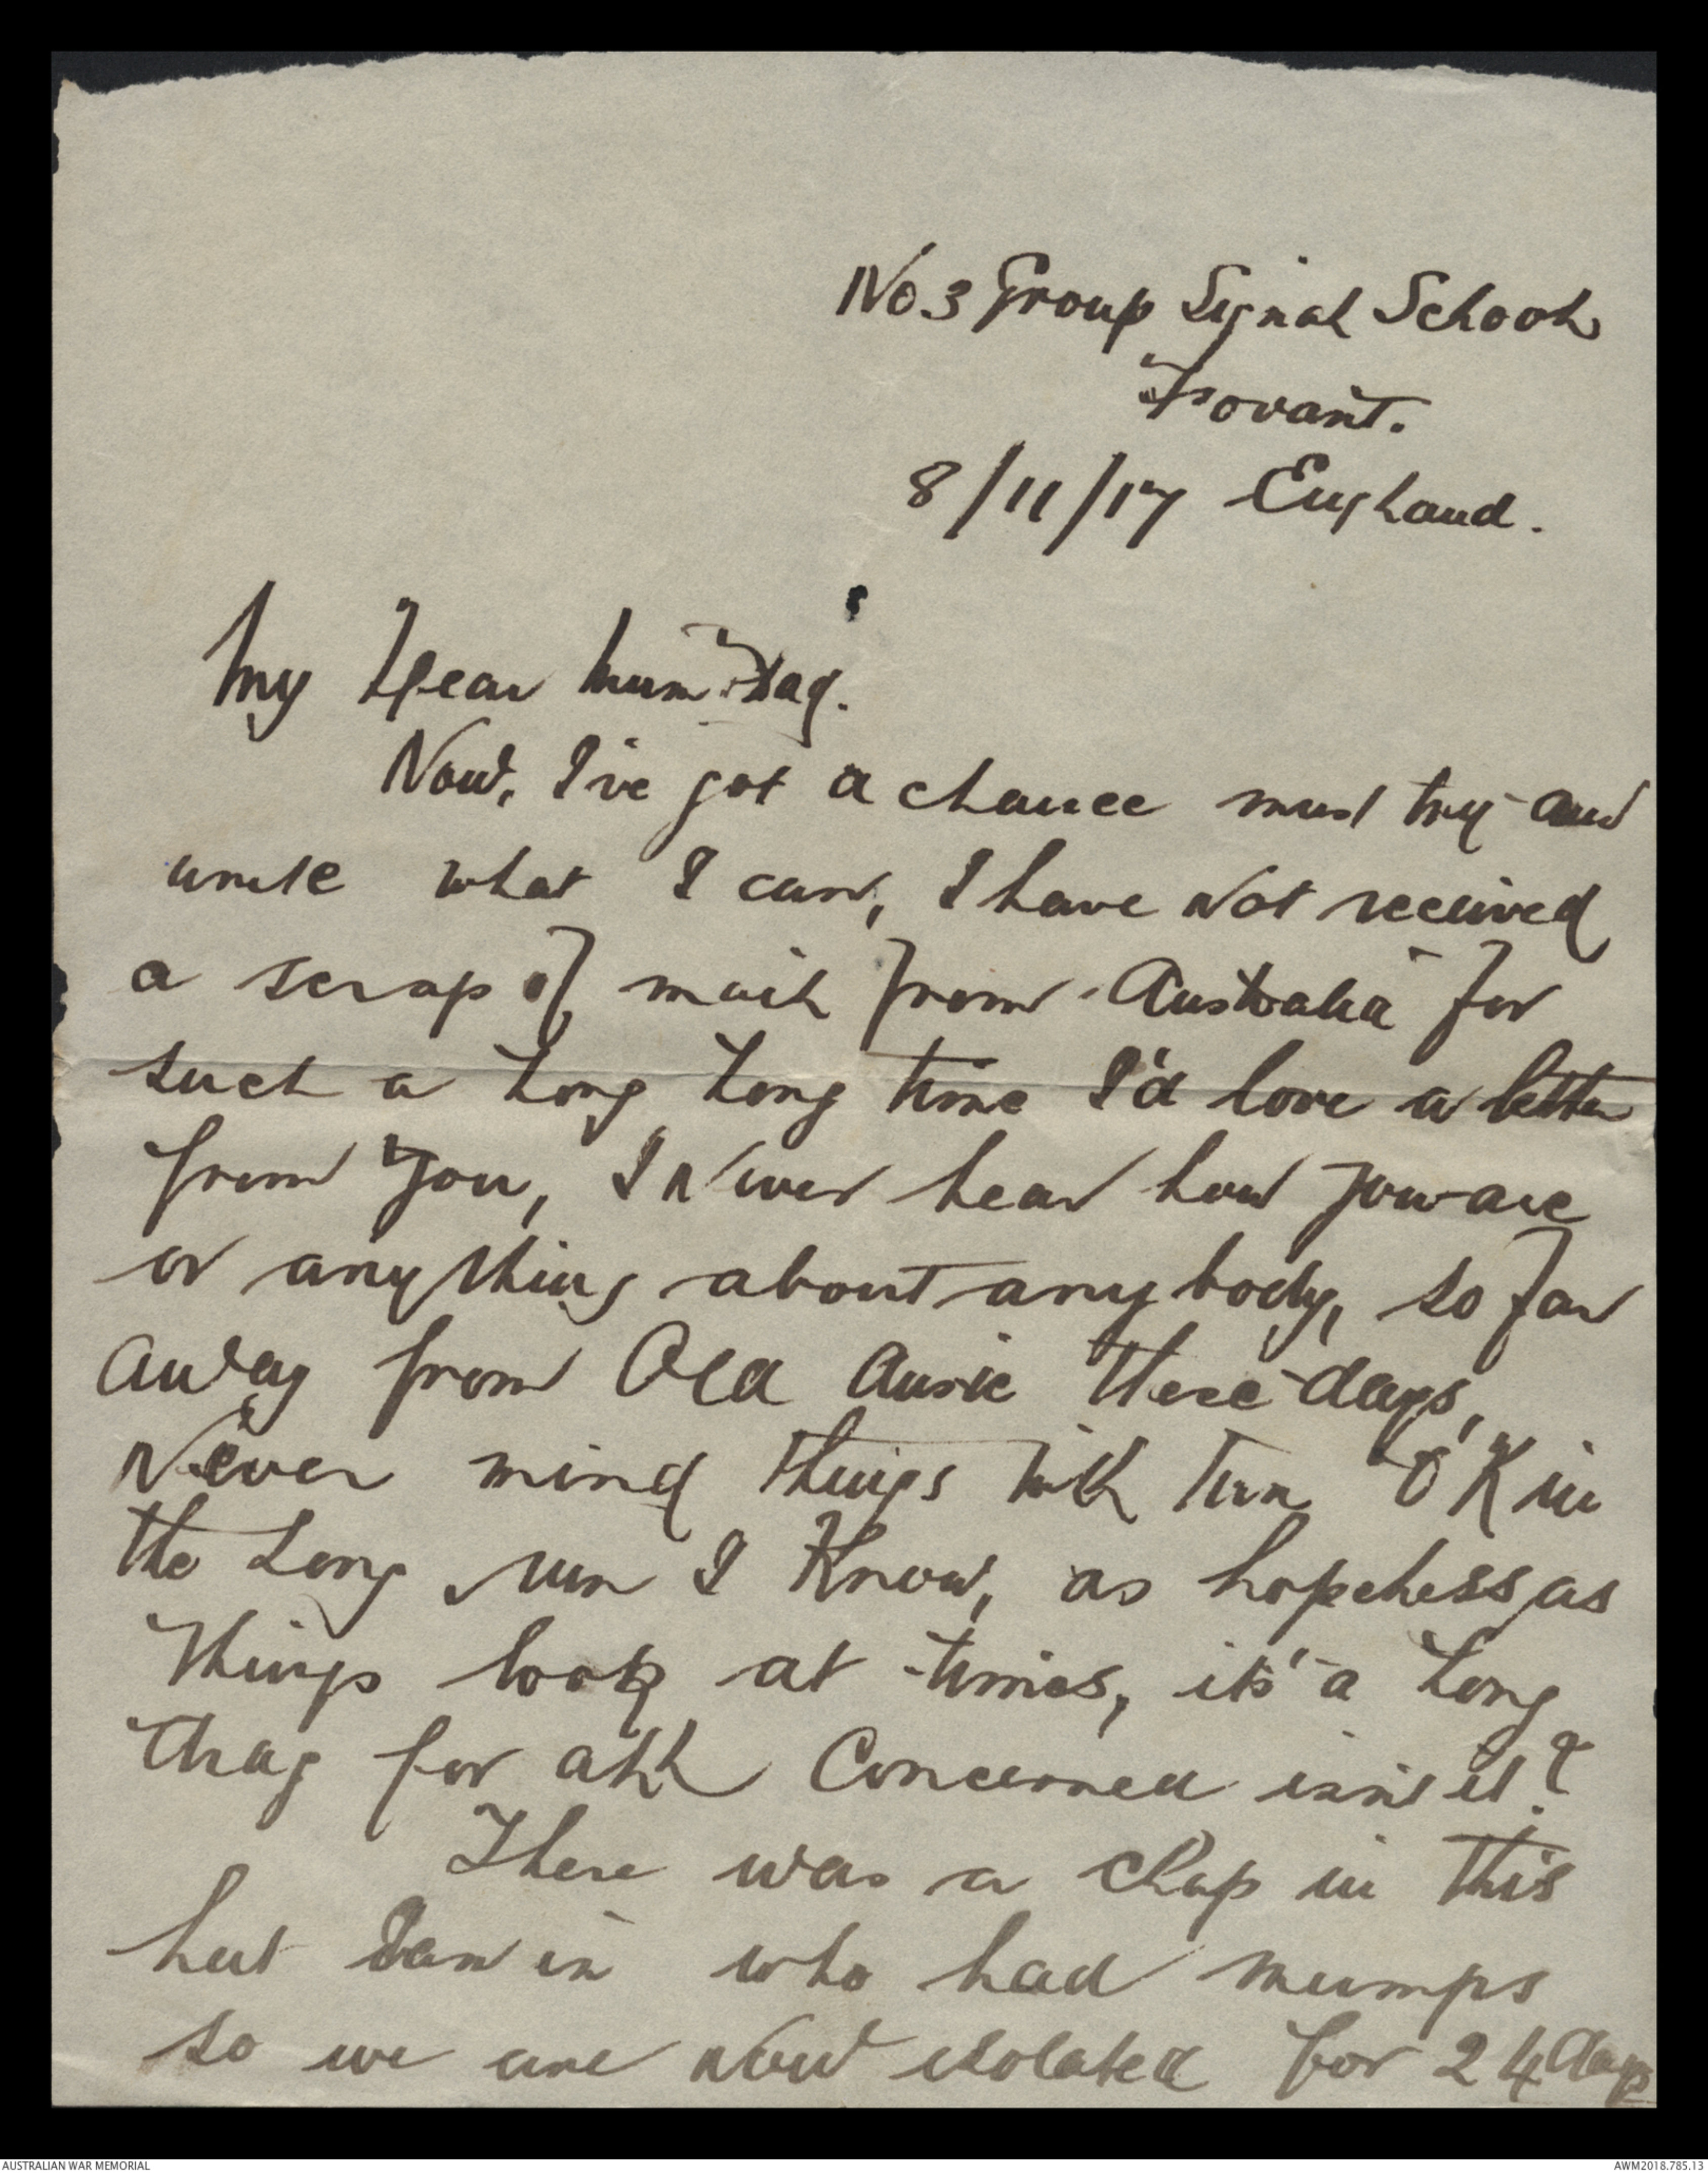 No 3 Group Signal School
Fovant.
8/11/17 England.
My Dear Mum & Dad.
Now, I've got a chance must try and
write what I can, I have not received
a scrap of mail from Australia for
such a long long time I'd love a letter
from you, I never hear how you are
or anything about anybody, so far
away from Old Ausie these days,
Never mind things will turn O'K in
the long run I know, as hopeless as
things look at times, it's a long
drag for all concerned isn't it?
There was a chap in this
hut I am in who had mumps
so we are now isolated for 24 days
AUSTRALIAN WAR MEMORIAL
AWM2018.785.13